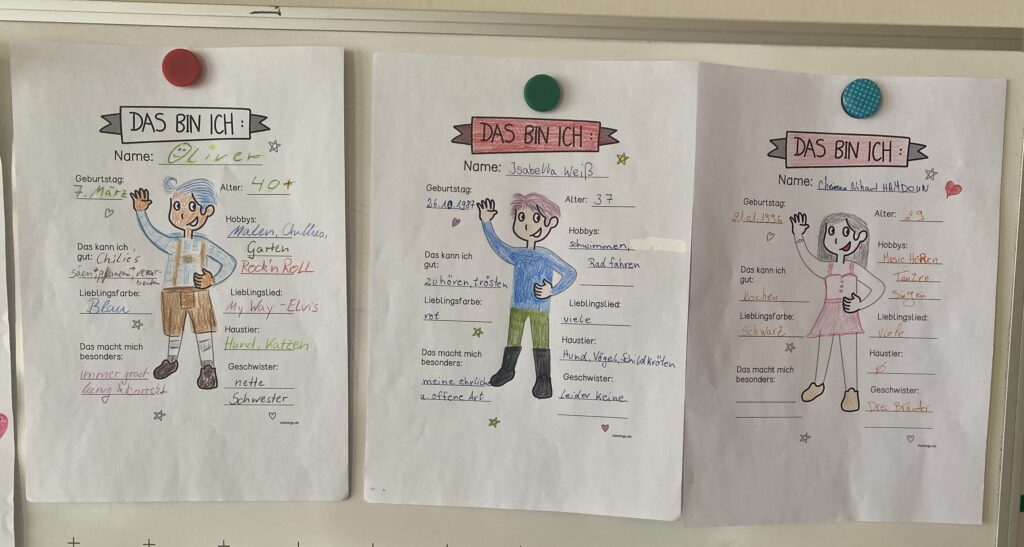 DAS BIN ICH :
Name: Oliver
Geburtstag:
7. März
Alter: 40+
Hobbys:
Malen, Chillies,
Garten
Rock'n Roll
Das kann ich
gut: Chilies
säen, pflanzen, verar-
beiten
Lieblingsfarbe:
Blau
Lieblingslied:
My Way - Elvis
Haustier:
Hund, Katzen
Das macht mich
besonders:
immer grad-
linig & korrekt
Geschwister:
nette
Schwester
DAS BIN ICH :
Name: Isabella Weiß
Geburtstag:
26.10.1987
Alter: 37
Hobbys:
schwimmen,
Rad fahren
Das kann ich
gut:
zuhören, trösten
Lieblingsfarbe:
rot
Lieblingslied:
viele
Haustier:
Hund, Vögel, Schildkröten
Das macht mich
besonders:
meine ehrliche
u. offene Art
Geschwister:
Leider keine
DAS BIN ICH :
Name: Nihad HAMDOUN
Geburtstag:
21.01.1996
Alter: 29
Hobbys:
Music HöRen
TanZen
Singen
Das kann ich
gut:
kochen
Lieblingsfarbe:
Schwarz
Lieblingslied:
Viele
Haustier:
Ø
Das macht mich
besonders:
Geschwister:
Drei Brüder